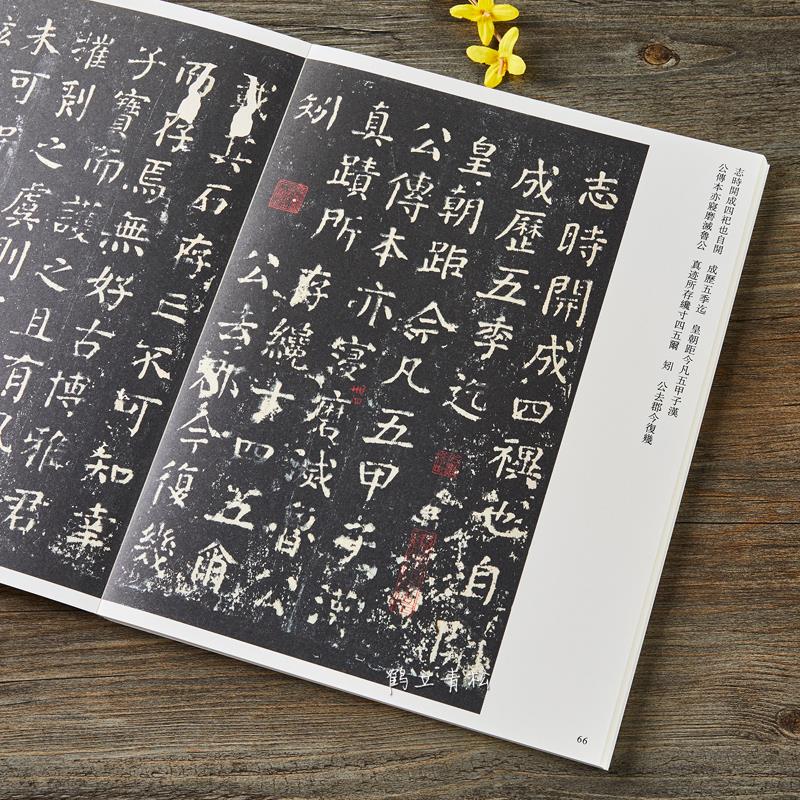 志時開成四祀也自開　成歷五季迄　皇朝距今凡五甲子漢
公傳本亦寝磨滅魯公　真迹所存纔寸四五爾　矧　公去郡今復幾
志時開成四禩也自開
成歷五季迄
皇朝距今凡五甲子漢
公傳本亦寖磨滅魯公
真蹟所存纔寸四五爾
矧
公去郡今復幾
載其石存亡不可知幸
而存焉無好古博雅君
子寶而護之且有風
摧剥之虞則
未可
鹤立青松
66